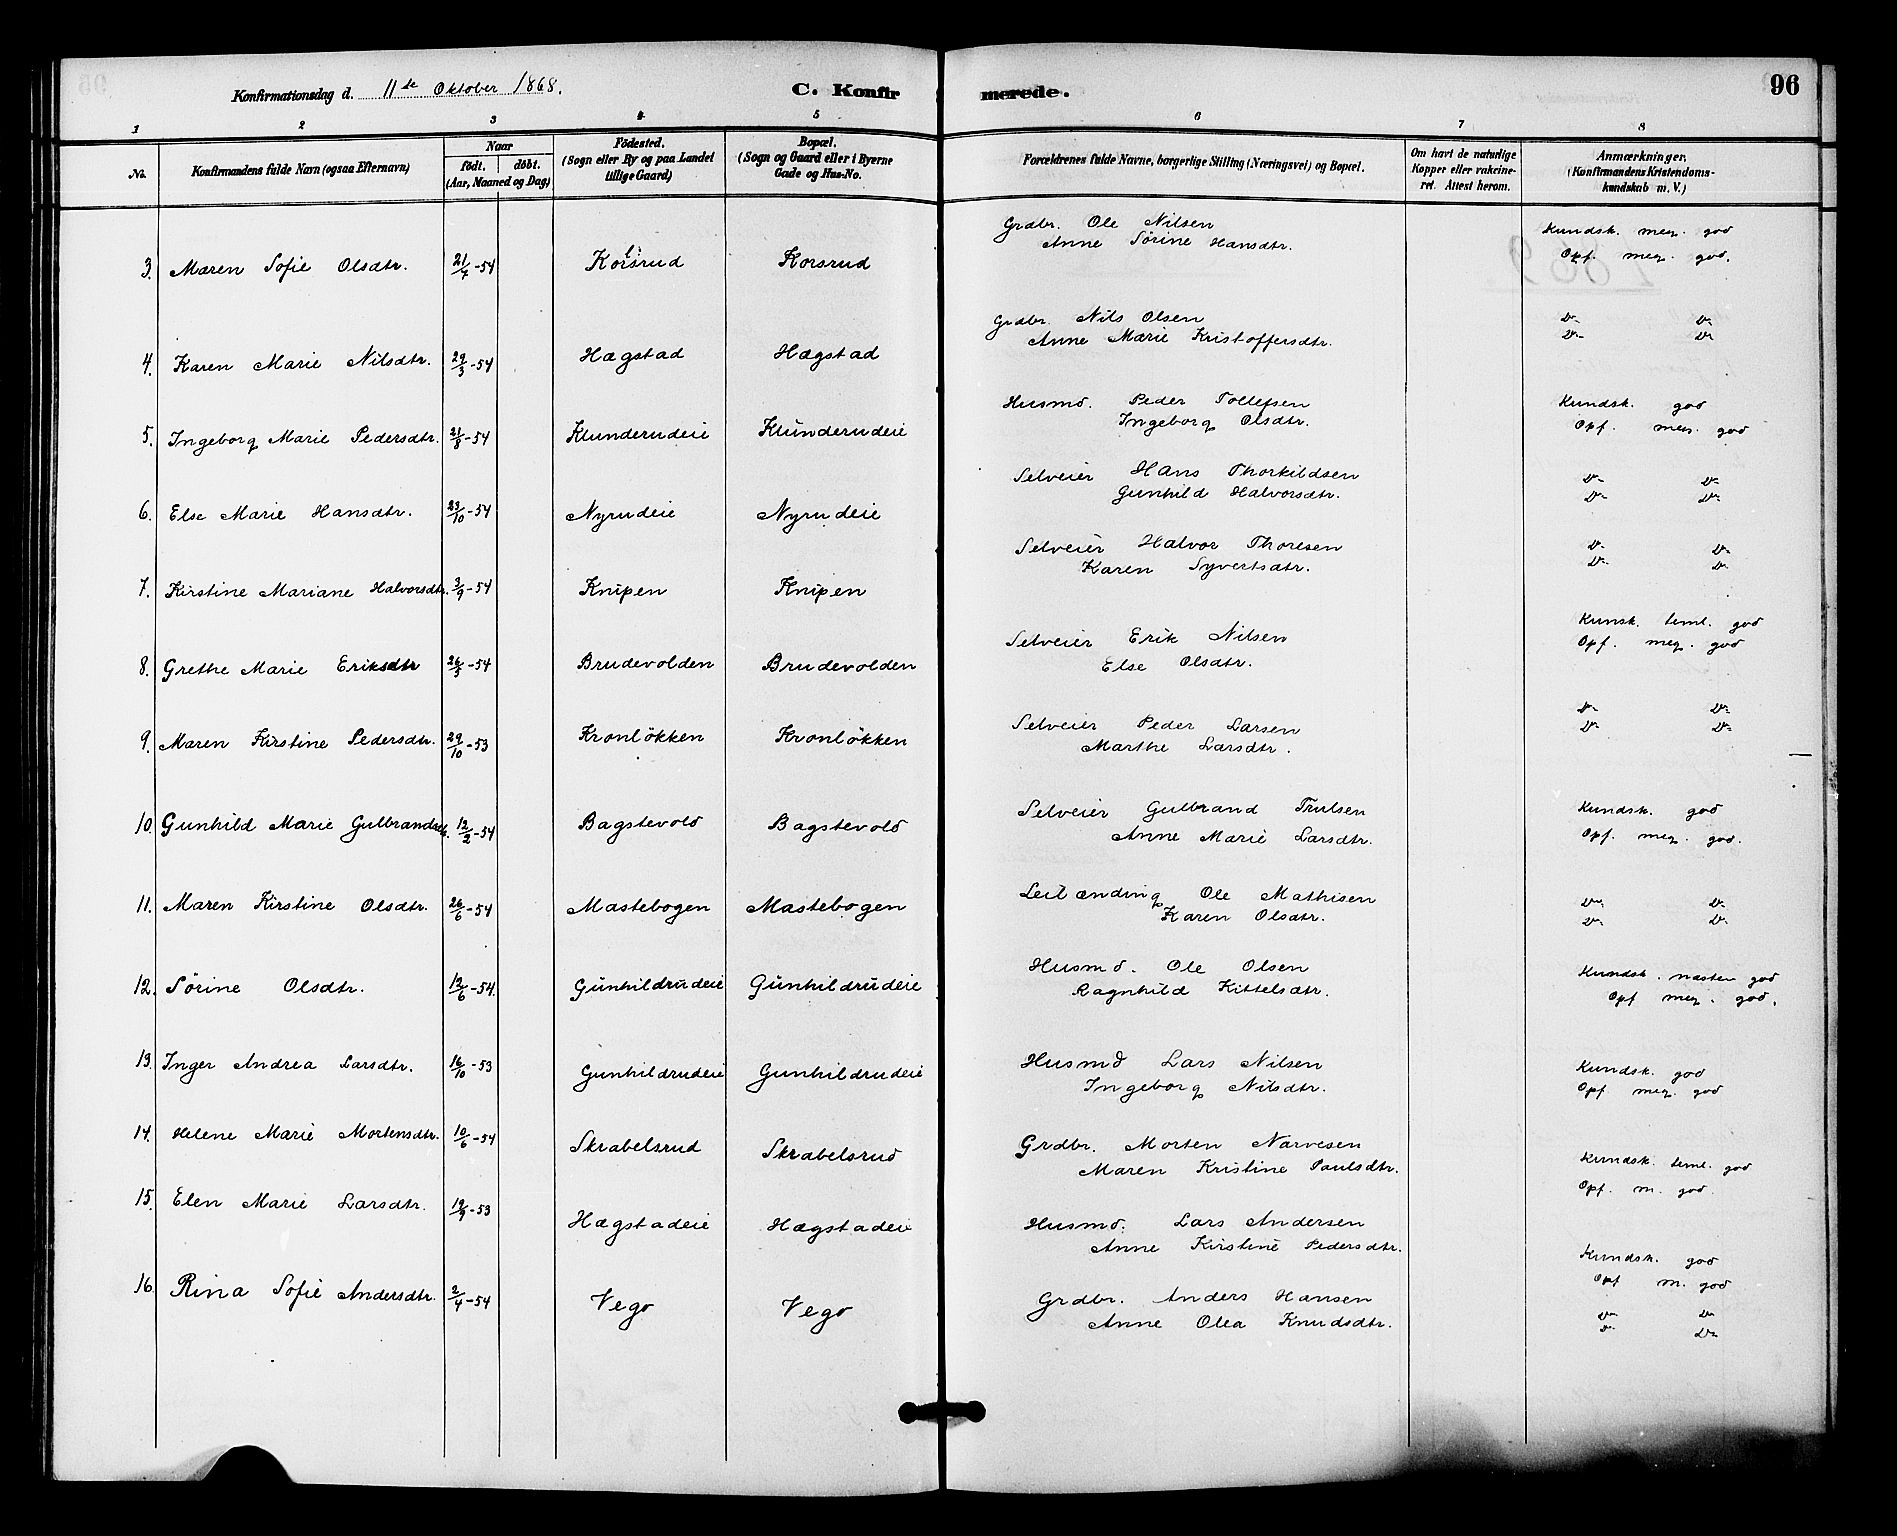 Konfirmationsdag d. 11te Oktober 1868.
C. Konfirmerede.
96
1 2 3 4 5 6 7 8
No.
Konfirmandens fulde Navn (ogsaa Efternavn)
Naar
födt. döbt.
(Aar, Maaned og Dag)
Födested.
(Sogn eller By og paa Landet
tillige Gaard)
Bopæl.
(Sogn og Gaard eller i Byerne
Gade og Hus-No.
Forældrenes fulde Navne, borgerlige Stilling (Næringsvei) og Bopæl.
Om havt de naturlige
Kopper eller vakcine-
ret. Attest herom.
Anmærkninger.
(Konfirmandens Kristendoms-
kundskab m. V.)
3. Maren Sofie Olsdtr. 21/7-54 Korsrud Korsrud Grdbr. Ole Nilsen Kundsk. meg. god
Anne Sörine Hansdtr. Opf. meg. god.
4. Karen Marie Nilsdtr. 29/3-54 Hægstad Hægstad Grdbr. Nils Olsen D- D-
Anne Marie Kristoffersdtr. D- D-
5. Ingeborg Marie Pedersdtr. 21/8-54 Klunderudeie Klunderudeie Husmd. Peder Tollefsen Kundsk. god
Ingeborg Olsdtr. Opf. meg. god
6. Else Marie Hansdtr. 23/10-54 Nyrudeie Nyrudeie Selveier Hans Thorkildsen D- D-
Gunhild Halvorsdtr. D- D-
7. Kirstine Mariane Halvorsdtr. 3/9-54 Knipen Knipen Selveier Halvor Thoresen D- D-
Karen Syvertsdtr. D- D-
8. Grethe Marie Eriksdtr 26/3-54 Brudevolden Brudevolden Selveier Erik Nilsen Kunsk. teml. god
Else Olsdtr. Opf. meg. god
9. Maren Kirstine Pedersdtr. 29/10-53 Kronlökken Kronlökken Selveier Peder Larsen D- D-
Marthe Larsdtr. D- D-
10. Gunhild Marie Gulbrandsdtr. 12/2-54 Bagstevold Bagstevold Selveier Gulbrand Trulsen Kundsk. god
Anne Marie Larsdtr. Opf. meg. god.
11. Maren Kirstine Olsdtr. 26/6-54 Mastebogen Mastebogen Leilænding Ole Mathisen D- D-
Karen Olsdtr. D- D-
12. Sörine Olsdtr. 12/6-54. Gunhildrudeie Gunhildrudeie Husmd. Ole Olsen Kundsk. næsten god
Ragnhild Kittelsdtr. Opf meg. god.
13. Inger Andrea Larsdtr. 16/10-53 Gunhildrudeie Gunhildrudeie Husmd Lars Nilsen Kundsk. god
Ingeborg Nilsdtr. Opf. meg. god
14. Helene Marie Mortensdtr. 10/6-54 Skrabelsrud Skrabelsrud Grdbr. Morten Narvesen Kundsk. teml. god
Maren Kristine Paulsdtr. Opf. m. god.
15. Elen Marie Larsdtr. 19/9-53 Hægstadeie Hægstadeie Husmd. Lars Andersen Kundsk. god
Anne Kirstine Pedersdtr. Opf m. god
16. Rina Sofie Andersdtr. 2/4-54 Vego Vego Grdbr. Anders Hansen D- D-
Anne Olea Knudsdtr. D- D-